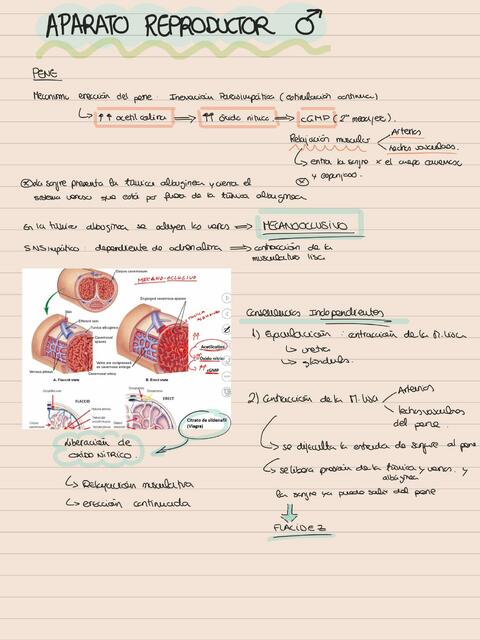 APARATO REPRODUCTOR ♂
PENE
Mecanismo erección del pene: Inervación Parasimpática (estimulación continua)
↳ ↑↑ acetilcolina ⟹ ↑↑ óxido nítrico ⟹ cGMP (2º mensajero).
Relajación muscular
Arterias
lechos vasculares
↳ entra la sangre x el cuerpo cavernoso
y esponjoso.
la sangre presenta la túnica albugínea y cierra el
sistema venoso que está por fuera de la túnica albugínea
En la túnica albugínea se ocluyen las venas ⟹ MECANOOCLUSIVO
SNSimpático: dependiente de adrenalina ⟹ contracción de la
musculatura lisa
MECANO-OCLUSIVO
Corpus cavernosum
Engorged cavernous spaces
Skin
Efferent vein
Tunica albuginea
Cavernosal spaces
Venous plexus
Veins are compressed as cavernosae enlarge
Cavernous artery
A. Flaccid state
B. Erect state
Acetilcolina
Óxido nítrico
cGMP
FLACCID
ERECT
Citrato de sildenafil
(Viagra)
Liberación de
ÓXIDO NÍTRICO.
↳ Relajación musculativa
↳ erección continuada
Consecuencias Independientes
1) Eyaculación: contracción de la M. lisa
↳ uretra
↳ glándulas.
2) Contracción de la M. lisa
Arterias
lechos vasculares
del pene.
↳ se dificulta la entrada de sangre al pene
↳ se libera presión de la túnica y venas. y
albugínea
la sangre ya puede salir del pene
FLACIDEZ